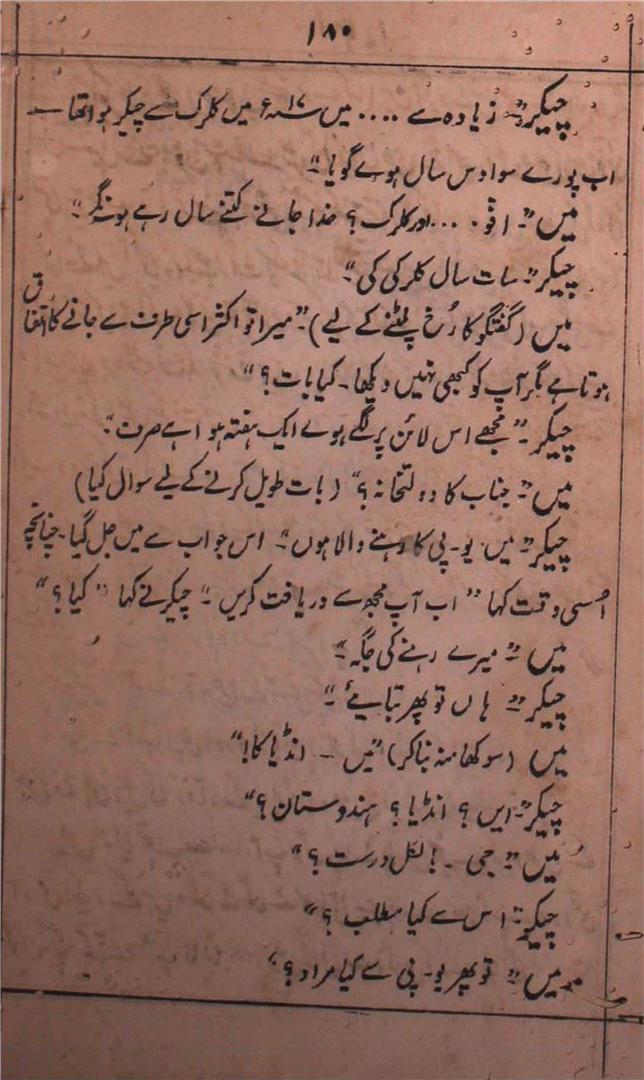 ۱۸۰
چیکر۔ "زیادہ سے .... میں ۱۷ء میں کلرک سے چیکر ہوا تھا —
اب پورے سوا دس سال ہوے گویا"
میں "۔ افو ۔ ... اور کلرک؟ خدا جانے کتنے سال رہے ہونگر"
چیکر "۔ سات سال کلرکی کی"
میں (گفتگو کا رُخ پلٹنے کے لیے)۔ "میرا تو اکثر اسی طرف سے جانے کا اتفاق
ہوتا ہے مگر آپ کو کبھی نہیں دیکھا۔ کیا بات؟"
چیکر۔ "مجھے اس لائن پر لگے ہوے ایک ہفتہ ہوا ہے صرف"
میں "۔ جناب کا دولتخانہ؟" (بات طویل کرنے کے لیے سوال کیا)
چیکر "میں یو۔ پی کا رہنے والا ہوں"۔ اس جواب سے میں جل گیا۔ چنانچہ
اُسی وقت کہا "اب آپ مجھ سے دریافت کریں"۔ چیکر نے کہا "کیا؟"
میں "۔ میرے رہنے کی جگہ"
چیکر "۔ ہاں تو پھر بتایئے"
میں (سوکھا منہ بنا کر) "میں — انڈیا کا!"
چیکر "۔ ایں؟ انڈیا؟ ہندوستان؟"
میں "۔ جی ۔ بالکل درست؟"
چیکر "۔ اس سے کیا مطلب؟"
میں "۔ تو پھر یو۔ پی سے کیا مراد؟"